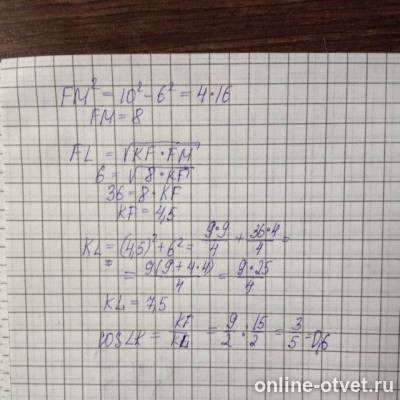 FM² = 10² - 6² = 4·16
FM = 8
FL = √(KF·FM)
6 = √(8·KF)
36 = 8·KF
KF = 4,5
KL² = (4,5)² + 6² = 9·9/4 + 36·4/4 =
= 9(9+4·4)/4 = 9·25/4
KL = 7,5
cos∠K = KF/KL = 9/2 : 15/2 = 3/5 = 0,6
online-otvet.ru